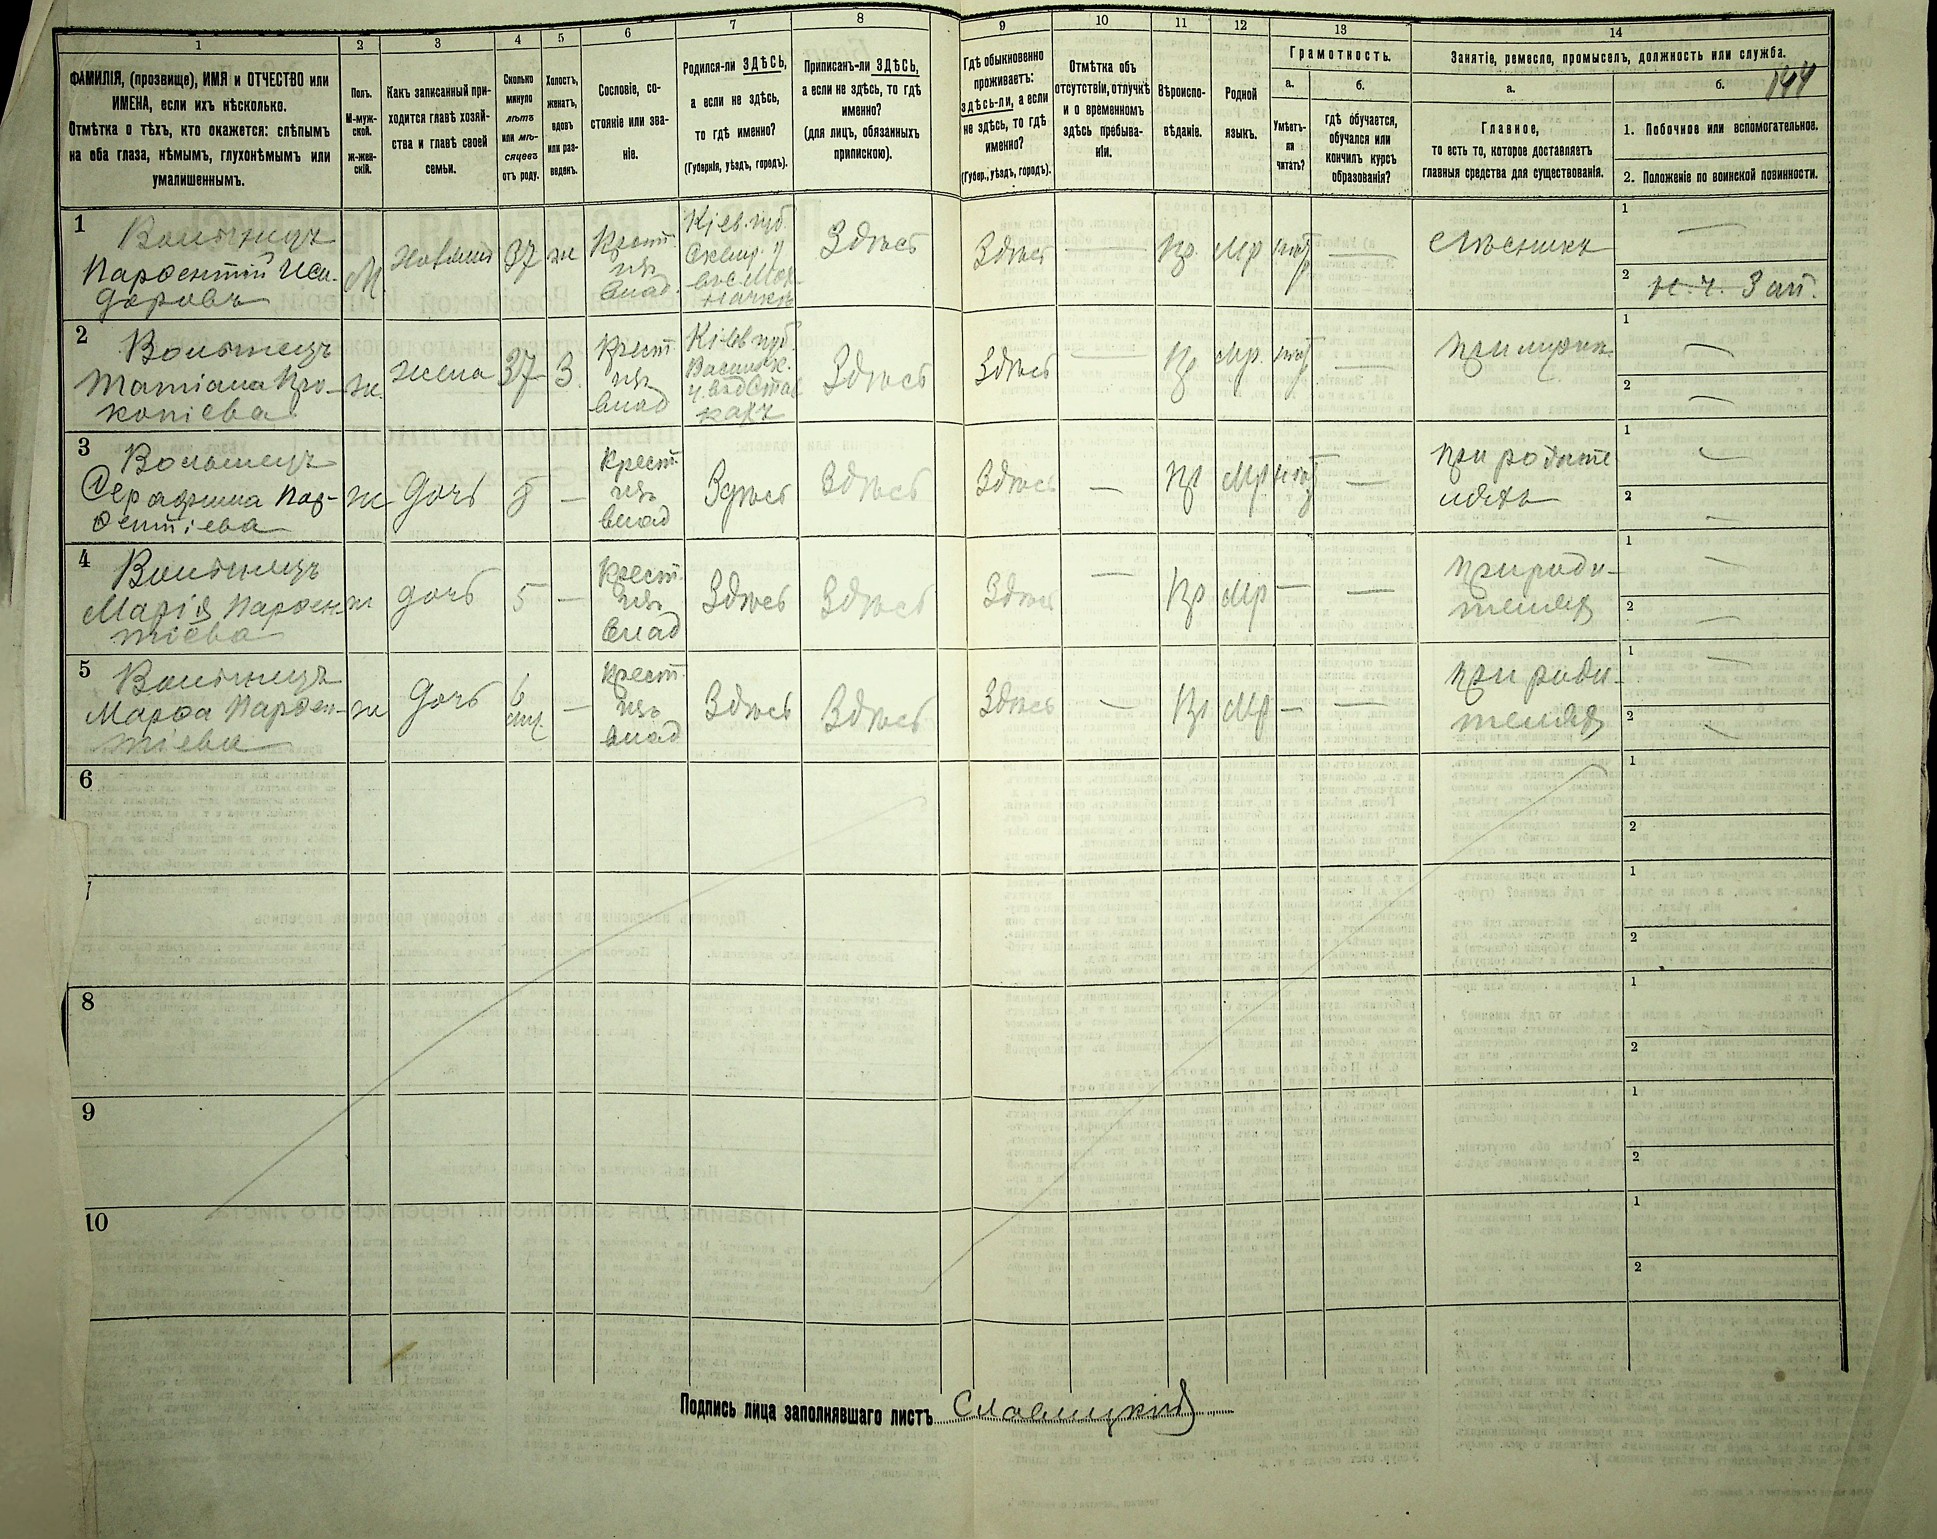 1
2
3
4
5
6
7
8
9
10
11
12
13
14
ФАМИЛІЯ, (прозвище), ИМЯ и ОТЧЕСТВО или
ИМЕНА, если ихъ нѣсколько.
Отмѣтка о тѣхъ, кто окажется: слѣпымъ
на оба глаза, нѣмымъ, глухонѣмымъ или
умалишеннымъ.
Полъ.
М-муж-
ской.
ж-жен-
скій.
Какъ записанный при-
ходится главѣ хозяй-
ства и главѣ своей
семьи.
Сколько
минуло
лѣтъ
или мѣ-
сяцевъ
отъ роду.
Холостъ,
женатъ,
вдовъ
или раз-
веденъ.
Сословіе, со-
стояніе или зва-
ніе.
Родился-ли ЗДѢСЬ,
а если не здѣсь,
то гдѣ именно?
(Губернія, уѣздъ, городъ).
Приписанъ-ли ЗДѢСЬ,
а если не здѣсь, то гдѣ
именно?
(для лицъ, обязанныхъ
припискою).
Гдѣ обыкновенно
проживаетъ:
здѣсь-ли, а если
не здѣсь, то гдѣ
именно?
(Губер., уѣздъ, городъ).
Отмѣтка объ
отсутствіи, отлучкѣ
и о временномъ
здѣсь пребыва-
ніи.
Вѣроиспо-
вѣданіе.
Родной
языкъ.
Грамотность.
а.
Умѣетъ-
ли
читать?
б.
гдѣ обучается,
обучался или
кончилъ курсъ
образованія?
Занятіе, ремесло, промыселъ, должность или служба.
144
а.
Главное,
то есть то, которое доставляетъ
главныя средства для существованія.
б.
1. Побочное или вспомогательное.
2. Положеніе по воинской повинности.
1
Волынецъ
Парѳентій Иси-
доровъ
М
хозяинъ
37
ж
Крест.
изъ
влад.
Кіев. губ.
Сквир. у
Здѣсь
Здѣсь
—
Пр.
Мр
нѣт
—
1
—
2
н. ч. Зап.
2
Волынецъ
Татіана Про-
копіева
ж.
жена
37
З.
Крест
изъ
влад
Кіев губ
Васильк.
Здѣсь
Здѣсь
—
Пр
Мр.
нѣт
—
При муж
1
—
2
—
3
Волынецъ
Серафима Пар-
ѳентіева
ж
дочь
8
—
Крест.
изъ
влад
Здѣсь
Здѣсь
Здѣсь
—
Пр
Мр
нѣт
—
При родите
ляхъ
1
—
2
—
4
Волынецъ
Марія Парѳен
тіева
ж
дочь
5
—
Крест.
изъ
влад
Здѣсь
Здѣсь
Здѣсь
—
Пр
Мр
—
—
При роди-
теляхъ
1
—
2
—
5
Волынецъ
Марѳа Парѳен-
тіева
ж
дочь
6
мц
—
Крест.
изъ
влад
Здѣсь
Здѣсь
Здѣсь
—
Пр
Мр
—
—
При роди-
теляхъ
1
—
2
—
6
1
2
1
2
8
1
2
9
1
2
10
1
2
Подпись лица заполнявшаго листъ